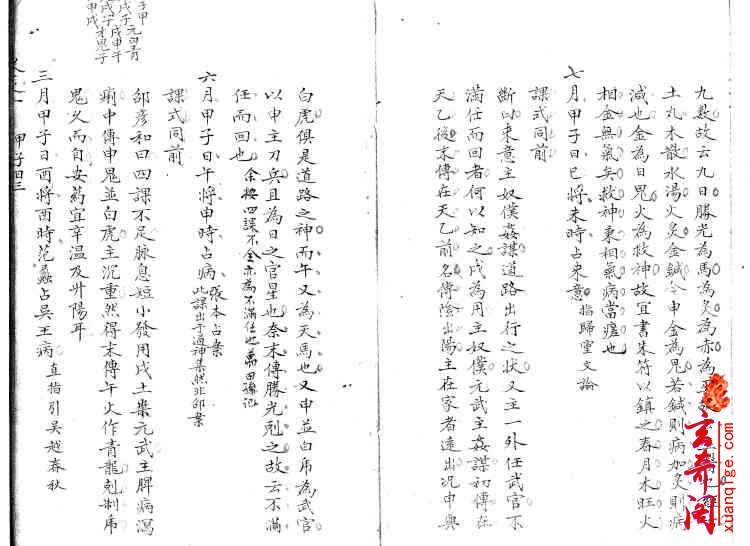 九數故云九日勝光為馬為灸為赤為
土丸木散水湯火灸金鍼今申金為鬼若鍼則病加灸則病
減也金為日鬼火為救神故宜書朱符以鎮之春月木旺火
相金無氣矣救神乘相氣病當瘥也
七月甲子日巳將未時占來意 指歸靈文論
課式同前
斷曰來意主奴僕姦謀道路出行之狀又主一外任武官不
滿任而回者何以知之戌為用主奴僕元武主姦謀初傳在
天乙後末傳在天乙前名傳陰出陽主在家者遠出況申與
白虎俱是道路之神而午又為天馬也又申並白虎為武官
以申主刀兵且為日之官星也奈末傳勝光剋之故云不滿
任而回也 余按四課不全亦為不滿任也
六月甲子日午將申時占病 張本占案 此課出于通神集然非邵案
課式同前
邵彥和曰四課不足脈息短小發用戌土乘元武主脾病瀉
痢中傳申鬼並白虎主沉重然得末傳午火作青龍剋制虎
鬼火而自安藥宜辛溫及升陽耳
三月甲子日酉將酉時范蠡占吳王病 直指引吳越春秋
甲子四三
玄奇阁
xuanqige.com